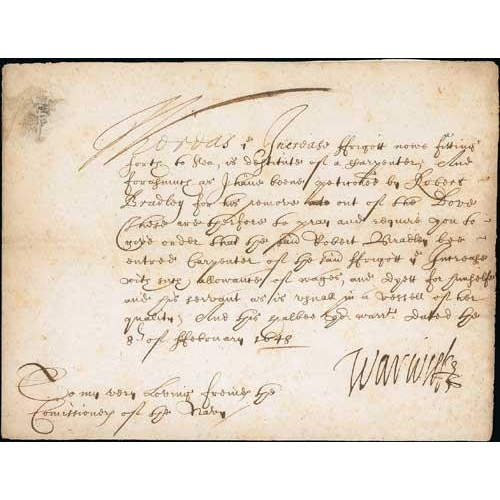 Whereas ye Increase ffrigott nowe fitting
forth to Sea, is destitute of a Carpenter; And
forasmuch as I have beene peticoned by Robert
Bradley for his remove out of the Dove
These are therfore to pray and require you to
give order that the said Robert Bradley bee
entred Carpenter of the said ffrigott ye Increase
with such allowance of wages, and dyett for himselfe
and his servant as is usuall in a vessell of her
quality; And this shalbee yor warrt. Dated the
8th of ffebruary 1648
Warwick
To my very Loving freinds the
Comissioners of the Navy